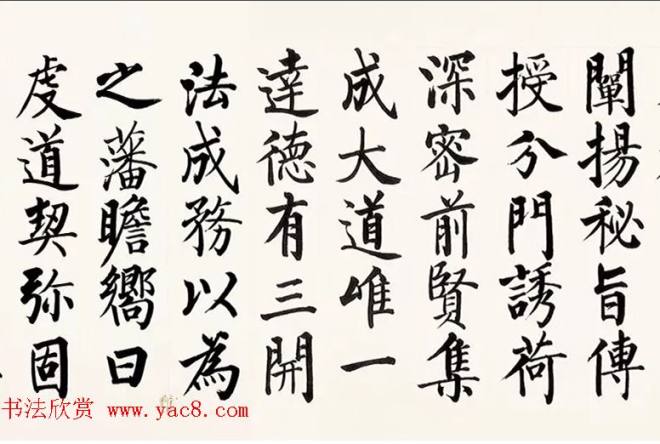 闡揚秘旨傳
授分門誘荷
深密前賢集
成大道唯一
達德有三開
法成務以為
之藩瞻嚮日
虔道契弥固
书法欣赏 www.yac8.com